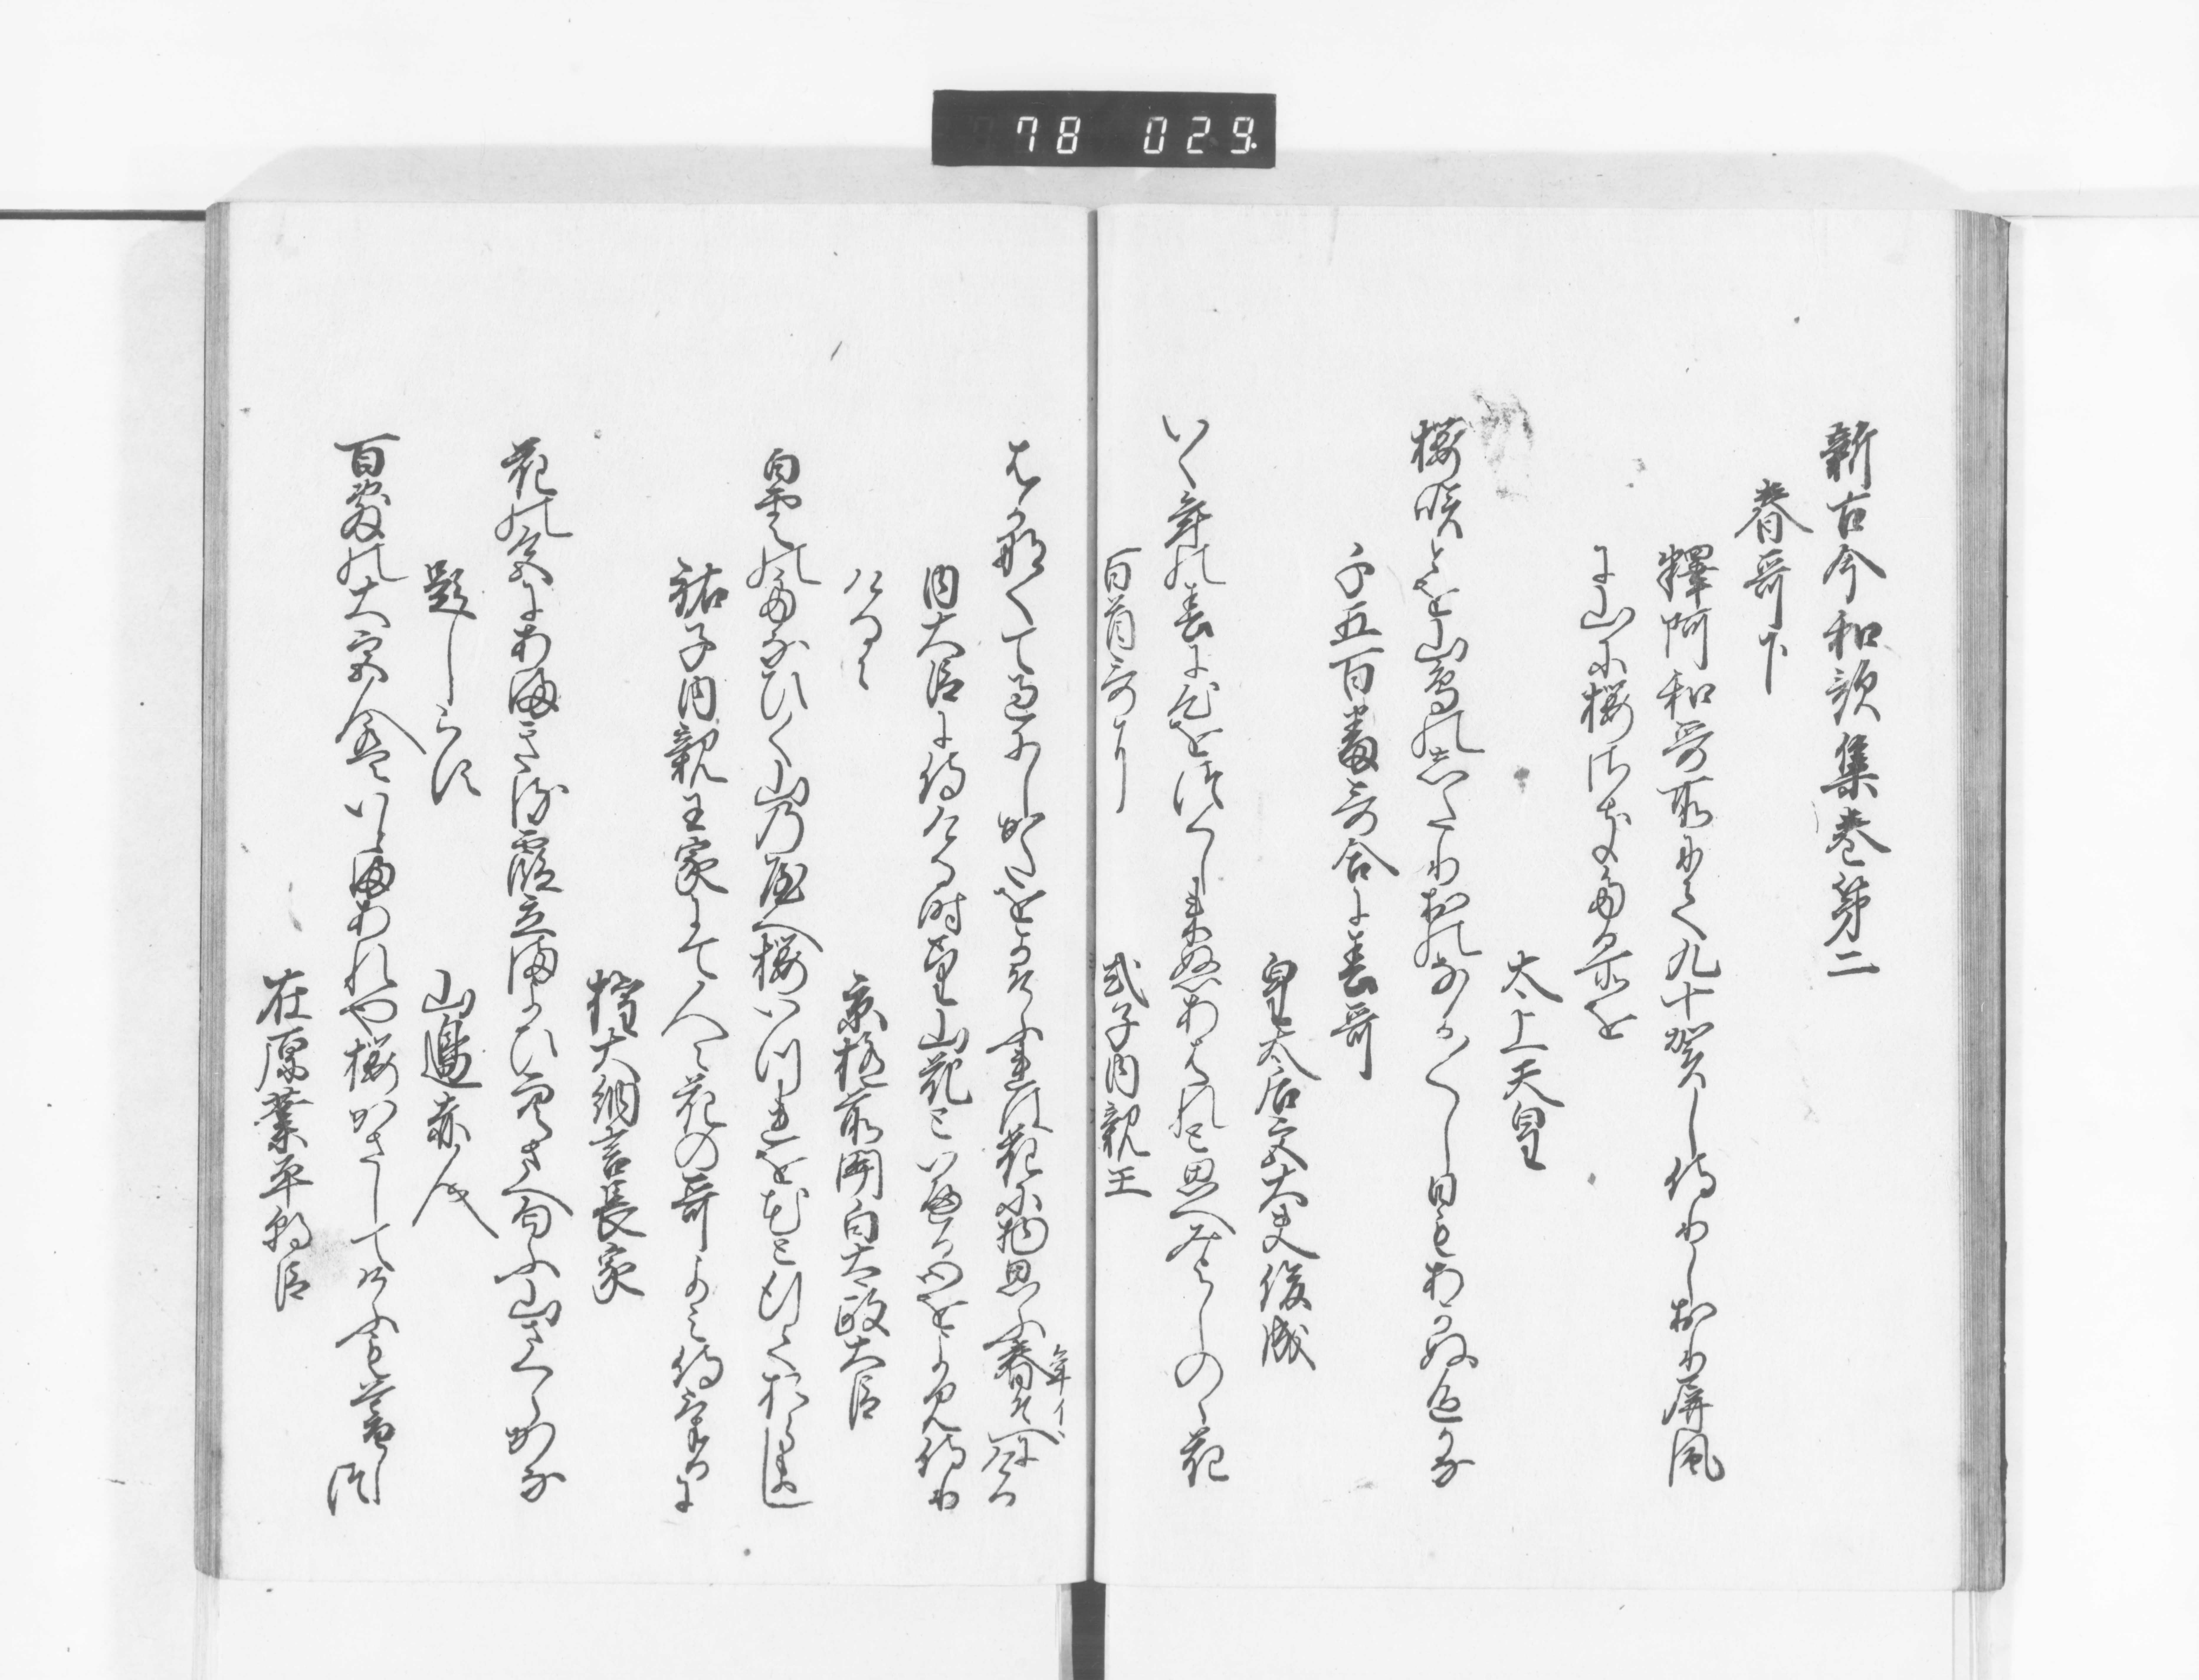 78 029.
新古今和歌集巻第二
春哥下
釋阿和哥所にて九十賀し侍りしおり屏風
に山に櫻さきたる所を
太上天皇
櫻咲とを山鳥のしたりおのなか〱し日もあかぬ色かな
千五百番哥合に春哥
皇太后宮大夫俊成
いく年の春に心をつくし来ぬあはれと思へみよしのゝ花
百首哥に
式子内親王
はかなくて過にしかたをかそふれは花に物思ふ春そへにける
年イ
内大臣に侍ける時望山花といへる心をよみ侍り
ける
京極前関白太政大臣
白雲のたなひく山の八重櫻いつれを花と行ておらまし
祐子内親王家にて人〻花の哥よみ侍けるに
権大納言長家
花の色にあまきる霞立まよひ空さへ匂ふ山さくらかな
題しらす
山邊赤人
百敷の大宮人はいとまあれや櫻かさしてけふも暮しつ
在原業平朝臣